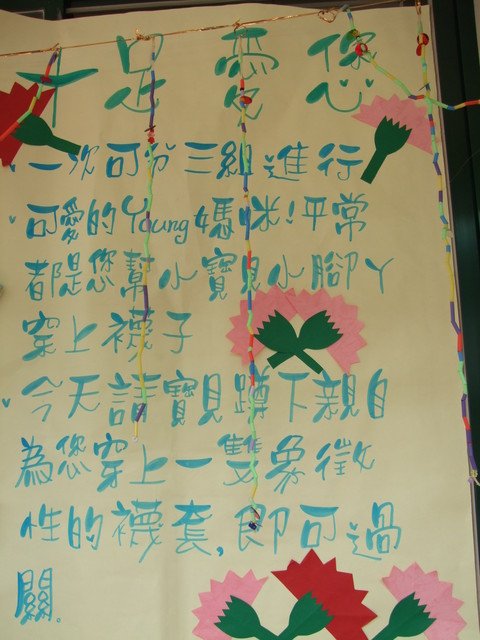 十足愛您
一次可分三組進行
可愛的Young媽咪!平常
都是您幫小寶貝小腳丫
穿上襪子
今天請寶貝蹲下親自
為您穿上一雙象徵
性的襪套,即可過
關.